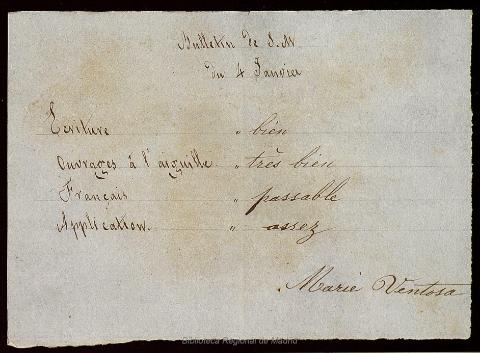 Bulletin de S. M
du 4 Janvier
Ecriture " bien
Ouvrages à l'aiguille. " très bien
Français " passable
Application. " assez
Marie Ventosa
Biblioteca Regional de Madrid